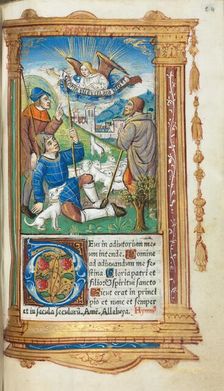 Eus in adiutorium me
um intende. Domine
ad adiuuandum me fe
stina Gloria patri et
filio: Et spiritui sancto
Sicut erat in princi
pio et nunc et semper
et in secula seculorū. Amē. Alleluya. Hymnus